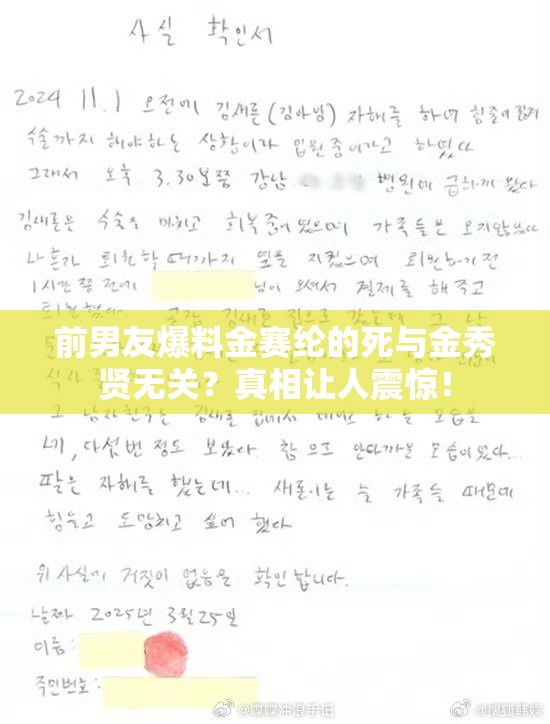 사실 확인서
2024 11.1 오전에 김새론(김아임) 자해를 하여 힘줄이
수술까지 해야하는 상황이라 입원중이라고 하였다
그래서 오후 3.30분쯤 강남 병원에 급하게 갔다
김새론은 수술을 마치고 회복중이었으며 가족들은 오지않았다
나 혼자 퇴원할때까지 옆을 지켰으며 퇴원하기 전
1시간 쯤 전에 님이 오셔서 결제를 해주고
前男友爆料金赛纶的死与金秀
贤无关？真相让人震惊！
그 남자친구는 김새론 집에서 하는 모습을
네,다섯번 정도 보았다. 참으로 안타까운 모습이었다...
팔은 자해를 했는데... 새론이는 늘 가족들 때문에
힘들고 도망치고 싶어 했다
위 사실에 거짓이 없음을 확인합니다.
날짜 2025년 3월 25일
이름:
주민번호: